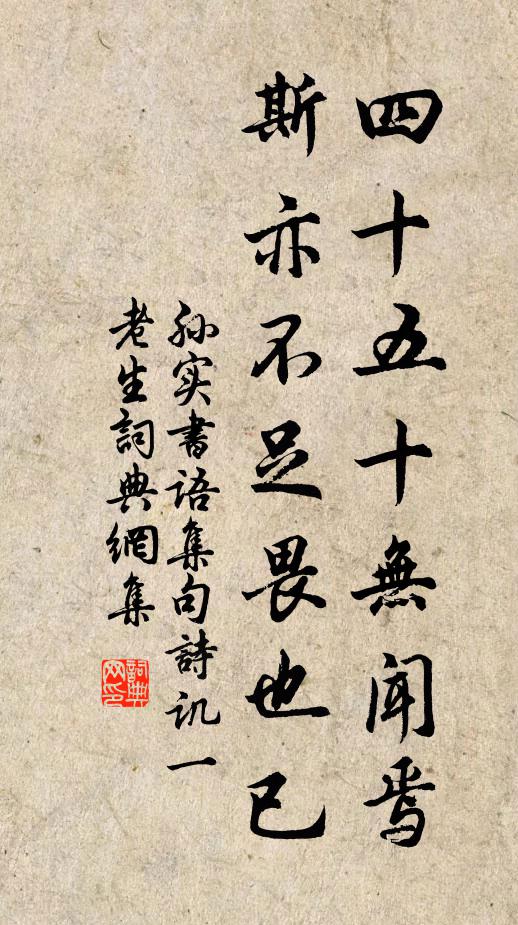 四十五十無聞焉
斯亦不足畏也已
孙实書语集句詩讥一
老生詞典網集
詞典
网印